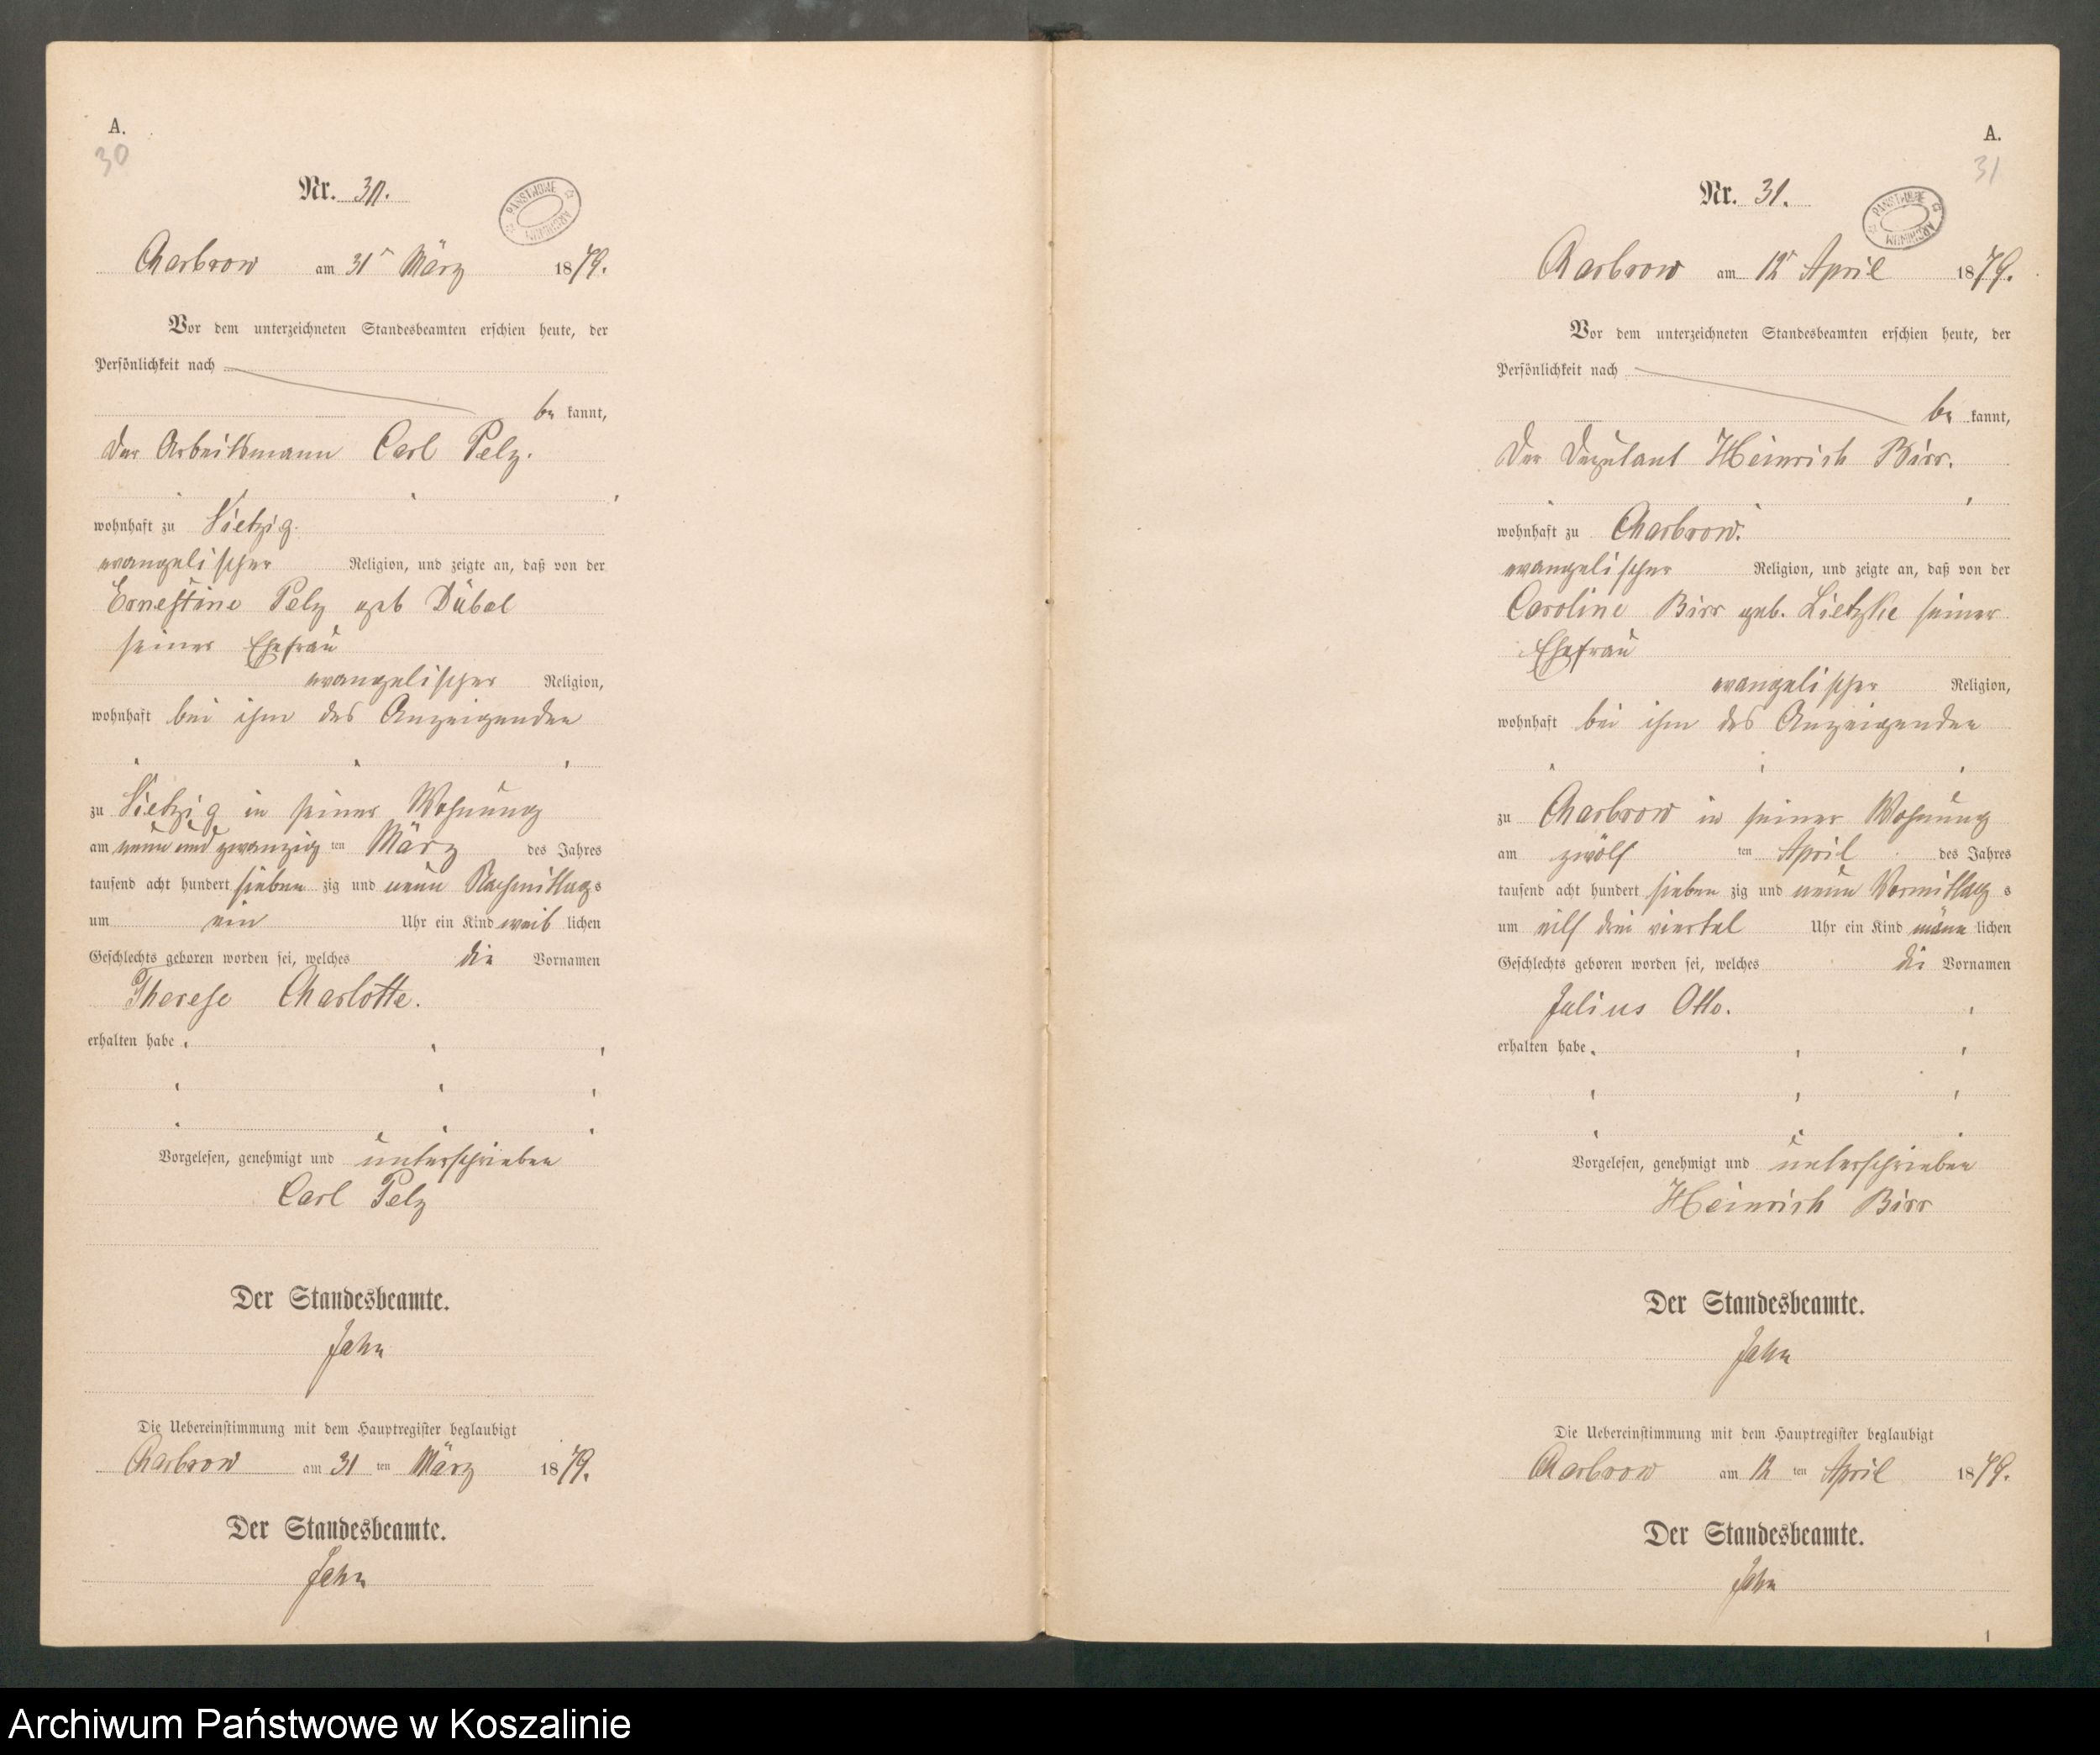 A.
30
Nr. 30.
PANSTWOWE ARCHIWUM
Charbrow am 31t März 1879.
Vor dem unterzeichneten Standesbeamten erschien heute, der
Persönlichkeit nach
be kannt,
der Arbeitsmann Carl Pelz.
wohnhaft zu Vietzig.
evangelischer Religion, und zeigte an, daß von der
Ernestine Pelz geb Dübal
seiner Ehefrau
evangelischer Religion,
wohnhaft bei ihm des Anzeigenden
zu Vietzig in seiner Wohnung
am neun und zwanzig ten März des Jahres
tausend acht hundert sieben zig und neun Nachmittags
um ein Uhr ein Kind weib lichen
Geschlechts geboren worden sei, welches die Vornamen
Therese Charlotte.
erhalten habe
Vorgelesen, genehmigt und unterschrieben
Carl Pelz
Der Standesbeamte.
Jahn
Die Uebereinstimmung mit dem Hauptregister beglaubigt
Charbrow am 31 ten März 1879.
Der Standesbeamte.
Jahn
A.
31
Nr. 31.
PANSTWOWE ARCHIWUM
Charbrow am 12t April 1879.
Vor dem unterzeichneten Standesbeamten erschien heute, der
Persönlichkeit nach
be kannt,
Der Deputant Heinrich Birr.
wohnhaft zu Charbrow.
evangelischer Religion, und zeigte an, daß von der
Caroline Birr geb. Lietzke seiner
Ehefrau
evangelischer Religion,
wohnhaft bei ihm des Anzeigenden
zu Charbrow in seiner Wohnung
am zwölf ten April des Jahres
tausend acht hundert sieben zig und neun Vormittag s
um eilf drei viertel Uhr ein Kind männ lichen
Geschlechts geboren worden sei, welches die Vornamen
Julius Otto.
erhalten habe
Vorgelesen, genehmigt und unterschrieben
Heinrich Birr
Der Standesbeamte.
Jahn
Die Uebereinstimmung mit dem Hauptregister beglaubigt
Charbrow am 12 ten April 1879.
Der Standesbeamte.
Jahn
1
Archiwum Państwowe w Koszalinie